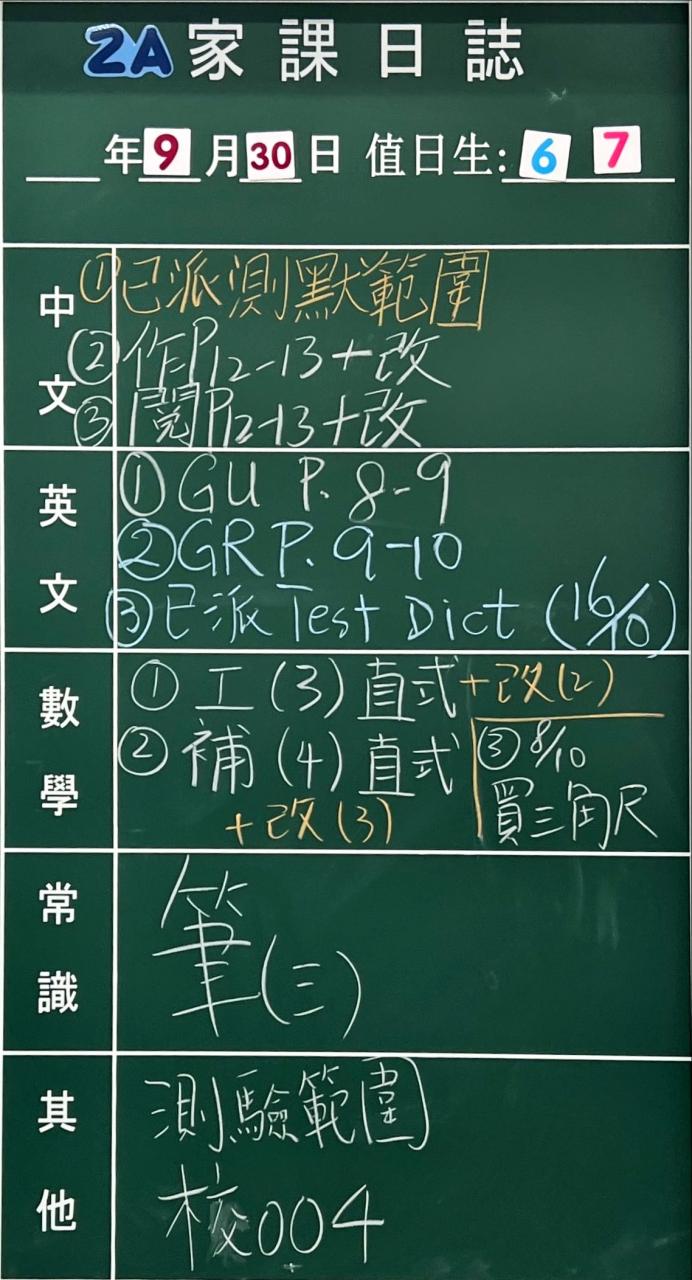 2A 家課日誌
年9月30日 值日生: 6 7
中文
①已派測默範圍
②作P12-13+改
③閱P12-13+改
英文
①GU P. 8-9
②GR P. 9-10
③已派 Test Dict (16/10)
數學
① 工(3)直式+改(2)
② 補(4)直式
+改(3)
③ 8/10
買三角尺
常識
筆(三)
其他
測驗範圍
校004